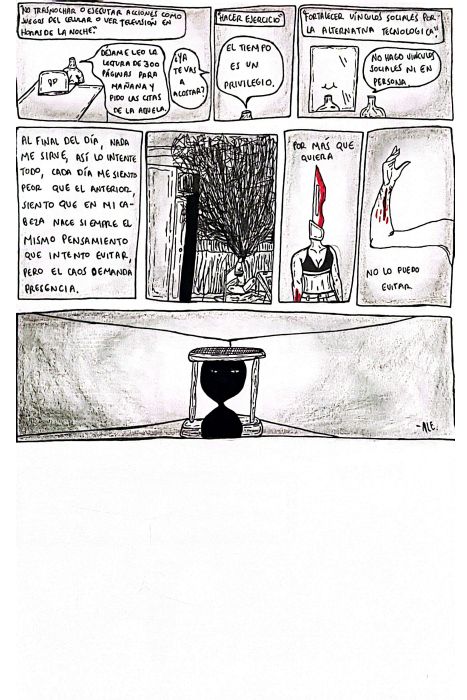 "NO TRASNOCHAR O EJECUTAR ACCIONES COMO
JUEGOS DEL CELULAR O VER TELEVISIÓN EN
HORAS DE LA NOCHE."
DÉJAME LEO LA
LECTURA DE 300
PÁGINAS PARA
MAÑANA Y
PIDO LAS CITAS
DE LA ABUELA.
¿YA
TE VAS
A
ACOSTAR?
"HACER EJERCICIO"
EL TIEMPO
ES UN
PRIVILEGIO.
"FORTALECER VÍNCULOS SOCIALES POR
LA ALTERNATIVA TECNOLOGICA".
NO HAGO VÍNCULOS
SOCIALES NI EN
PERSONA.
AL FINAL DEL DÍA, NADA
ME SIRVE, ASÍ LO INTENTE
TODO, CADA DÍA ME SIENTO
PEOR QUE EL ANTERIOR,
SIENTO QUE EN MI CA-
BEZA NACE SIEMPRE EL
MISMO PENSAMIENTO
QUE INTENTO EVITAR,
PERO EL CAOS DEMANDA
PRESENCIA.
POR MÁS QUE
QUIERA
NO LO PUEDO
EVITAR
-ALE.